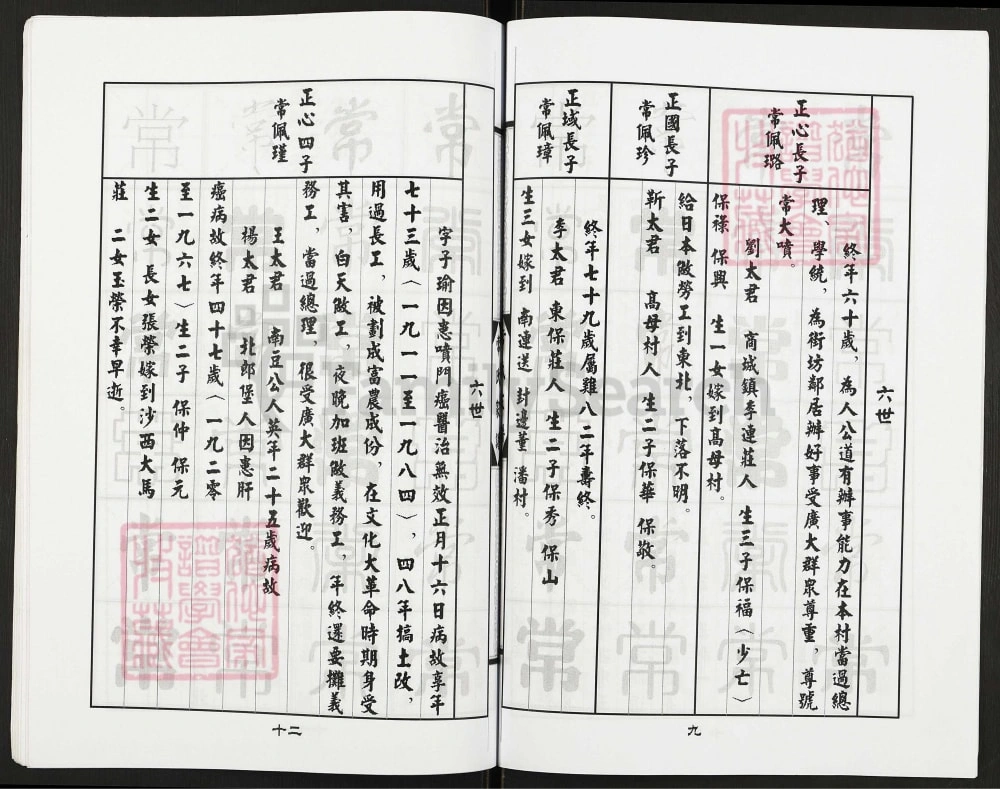 六世
正心長子
常佩璐
終年六十歲，為人公道有辦事能力在本村當過總
理、學統，為街坊鄰居辦好事受廣大群眾尊重，尊號
常大噴。
劉太君 商城鎮李連莊人 生三子保福（少亡）
保祿 保興 生一女嫁到高母村。
正國長子
常佩珍
給日本做勞工到東北，下落不明。
靳太君 高母村人生二子保華 保敬。
正域長子
常佩璋
終年七十九歲屬雞八二年壽終。
李太君 東保莊人生二子保秀 保山
生三女嫁到 南連送 封邊董 潘村。
九
六世
正心四子
常佩瑾
字子瑜因患噴門癌醫治無效正月十六日病故享年
七十三歲（一九一一至一九八四），四八年搞土改，
用過長工，被劃成富農成份，在文化大革命時期身受
其害，白天做工，夜晚加班做義務工，年終還要攤義
務工，當過總理，很受廣大群眾歡迎。
王太君 南豆公人英年二十五歲病故
楊太君 北郎堡人因患肝
癌病故終年四十七歲（一九二零
至一九六七）生二子 保仲 保元
生二女 長女張榮嫁到沙西大馬
莊 二女玉榮不幸早逝。
十二